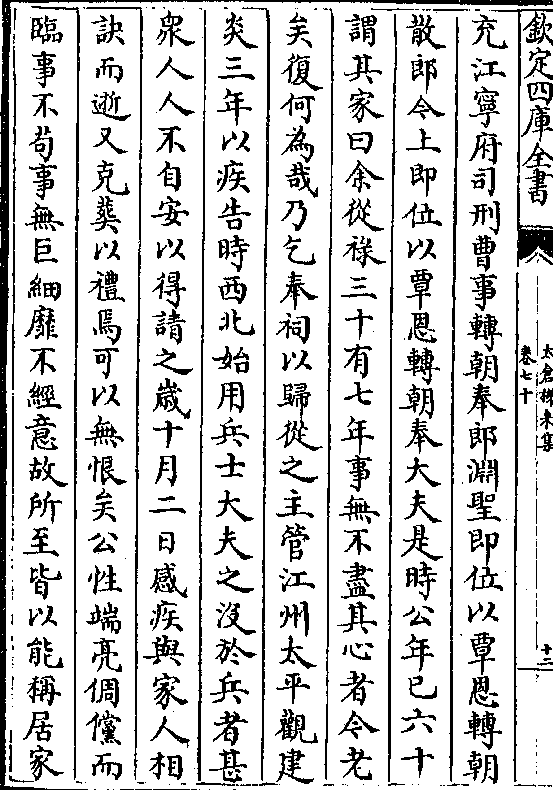 欽定四庫全書
太倉稊米集
卷七十
十二
充江寧府司刑曹事轉朝奉郎淵聖即位以覃恩轉朝
散郎令上即位以覃恩轉朝奉大夫是時公年已六十
謂其家曰余從祿三十有七年事無不盡其心者令老
矣復何為哉乃乞奉祠以歸從之主管江州太平觀建
炎三年以疾告時西北始用兵士大夫之沒於兵者甚
衆人人不自安以得請之歲十月二日感疾與家人相
訣而逝又克葬以禮焉可以無恨矣公性端亮倜儻而
臨事不苟事無巨細靡不經意故所至皆以能稱居家